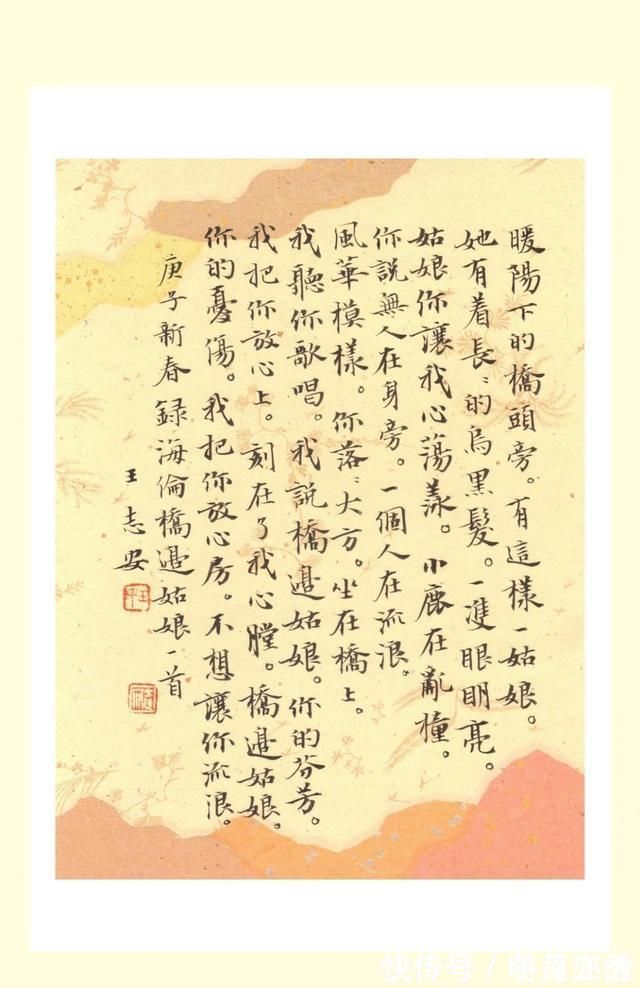 暖陽下的橋頭旁。有這樣一姑娘。
她有着長〻的烏黑髮。一雙眼明亮。
姑娘你讓我心蕩漾。小鹿在亂撞。
你說無人在身旁。一個人在流浪。
風華模樣。你落〻大方。坐在橋上。
我聽你歌唱。我說橋邊姑娘。你的芬芳。
我把你放心上。刻在了我心膛。橋邊姑娘。
你的憂傷。我把你放心房。不想讓你流浪。
庚子新春錄海倫橋邊姑娘一首
王志安
快传号/